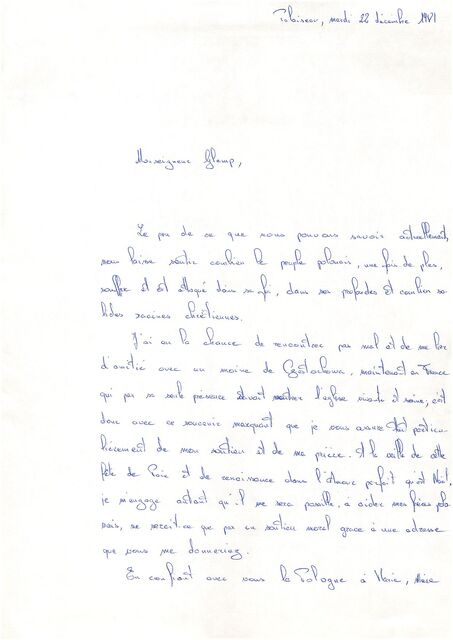 Palaiseau, mardi 22 décembre 1981
Monseigneur Glemp,
Le peu de ce que nous pouvons savoir actuellement,
nous laisse sentir combien le peuple polonais, une fois de plus,
souffre et est attaqué dans sa foi, dans ses profondes et combien so
lides racines chrétiennes.
J'ai eu la chance de rencontrer par mal et de me lier
d'amitié avec un moine de Częstochowa, maintenant en France
qui par sa seule présence savait montrer l'église vivante et sainte; c'est
donc avec ce souvenir marquant que je vous assure tout particu
lièrement de mon soutien et de ma prière. Et la veille de cette
fête de Paix et de renaissance dans l'Amour parfait qu'est Noël,
je m'engage autant qu'il me sera possible, à aider mes frères polo
nais, ne serait-ce que par un soutien moral grâce à une adresse
que vous me donneriez.
En confiant avec vous la Pologne à Marie, Mère